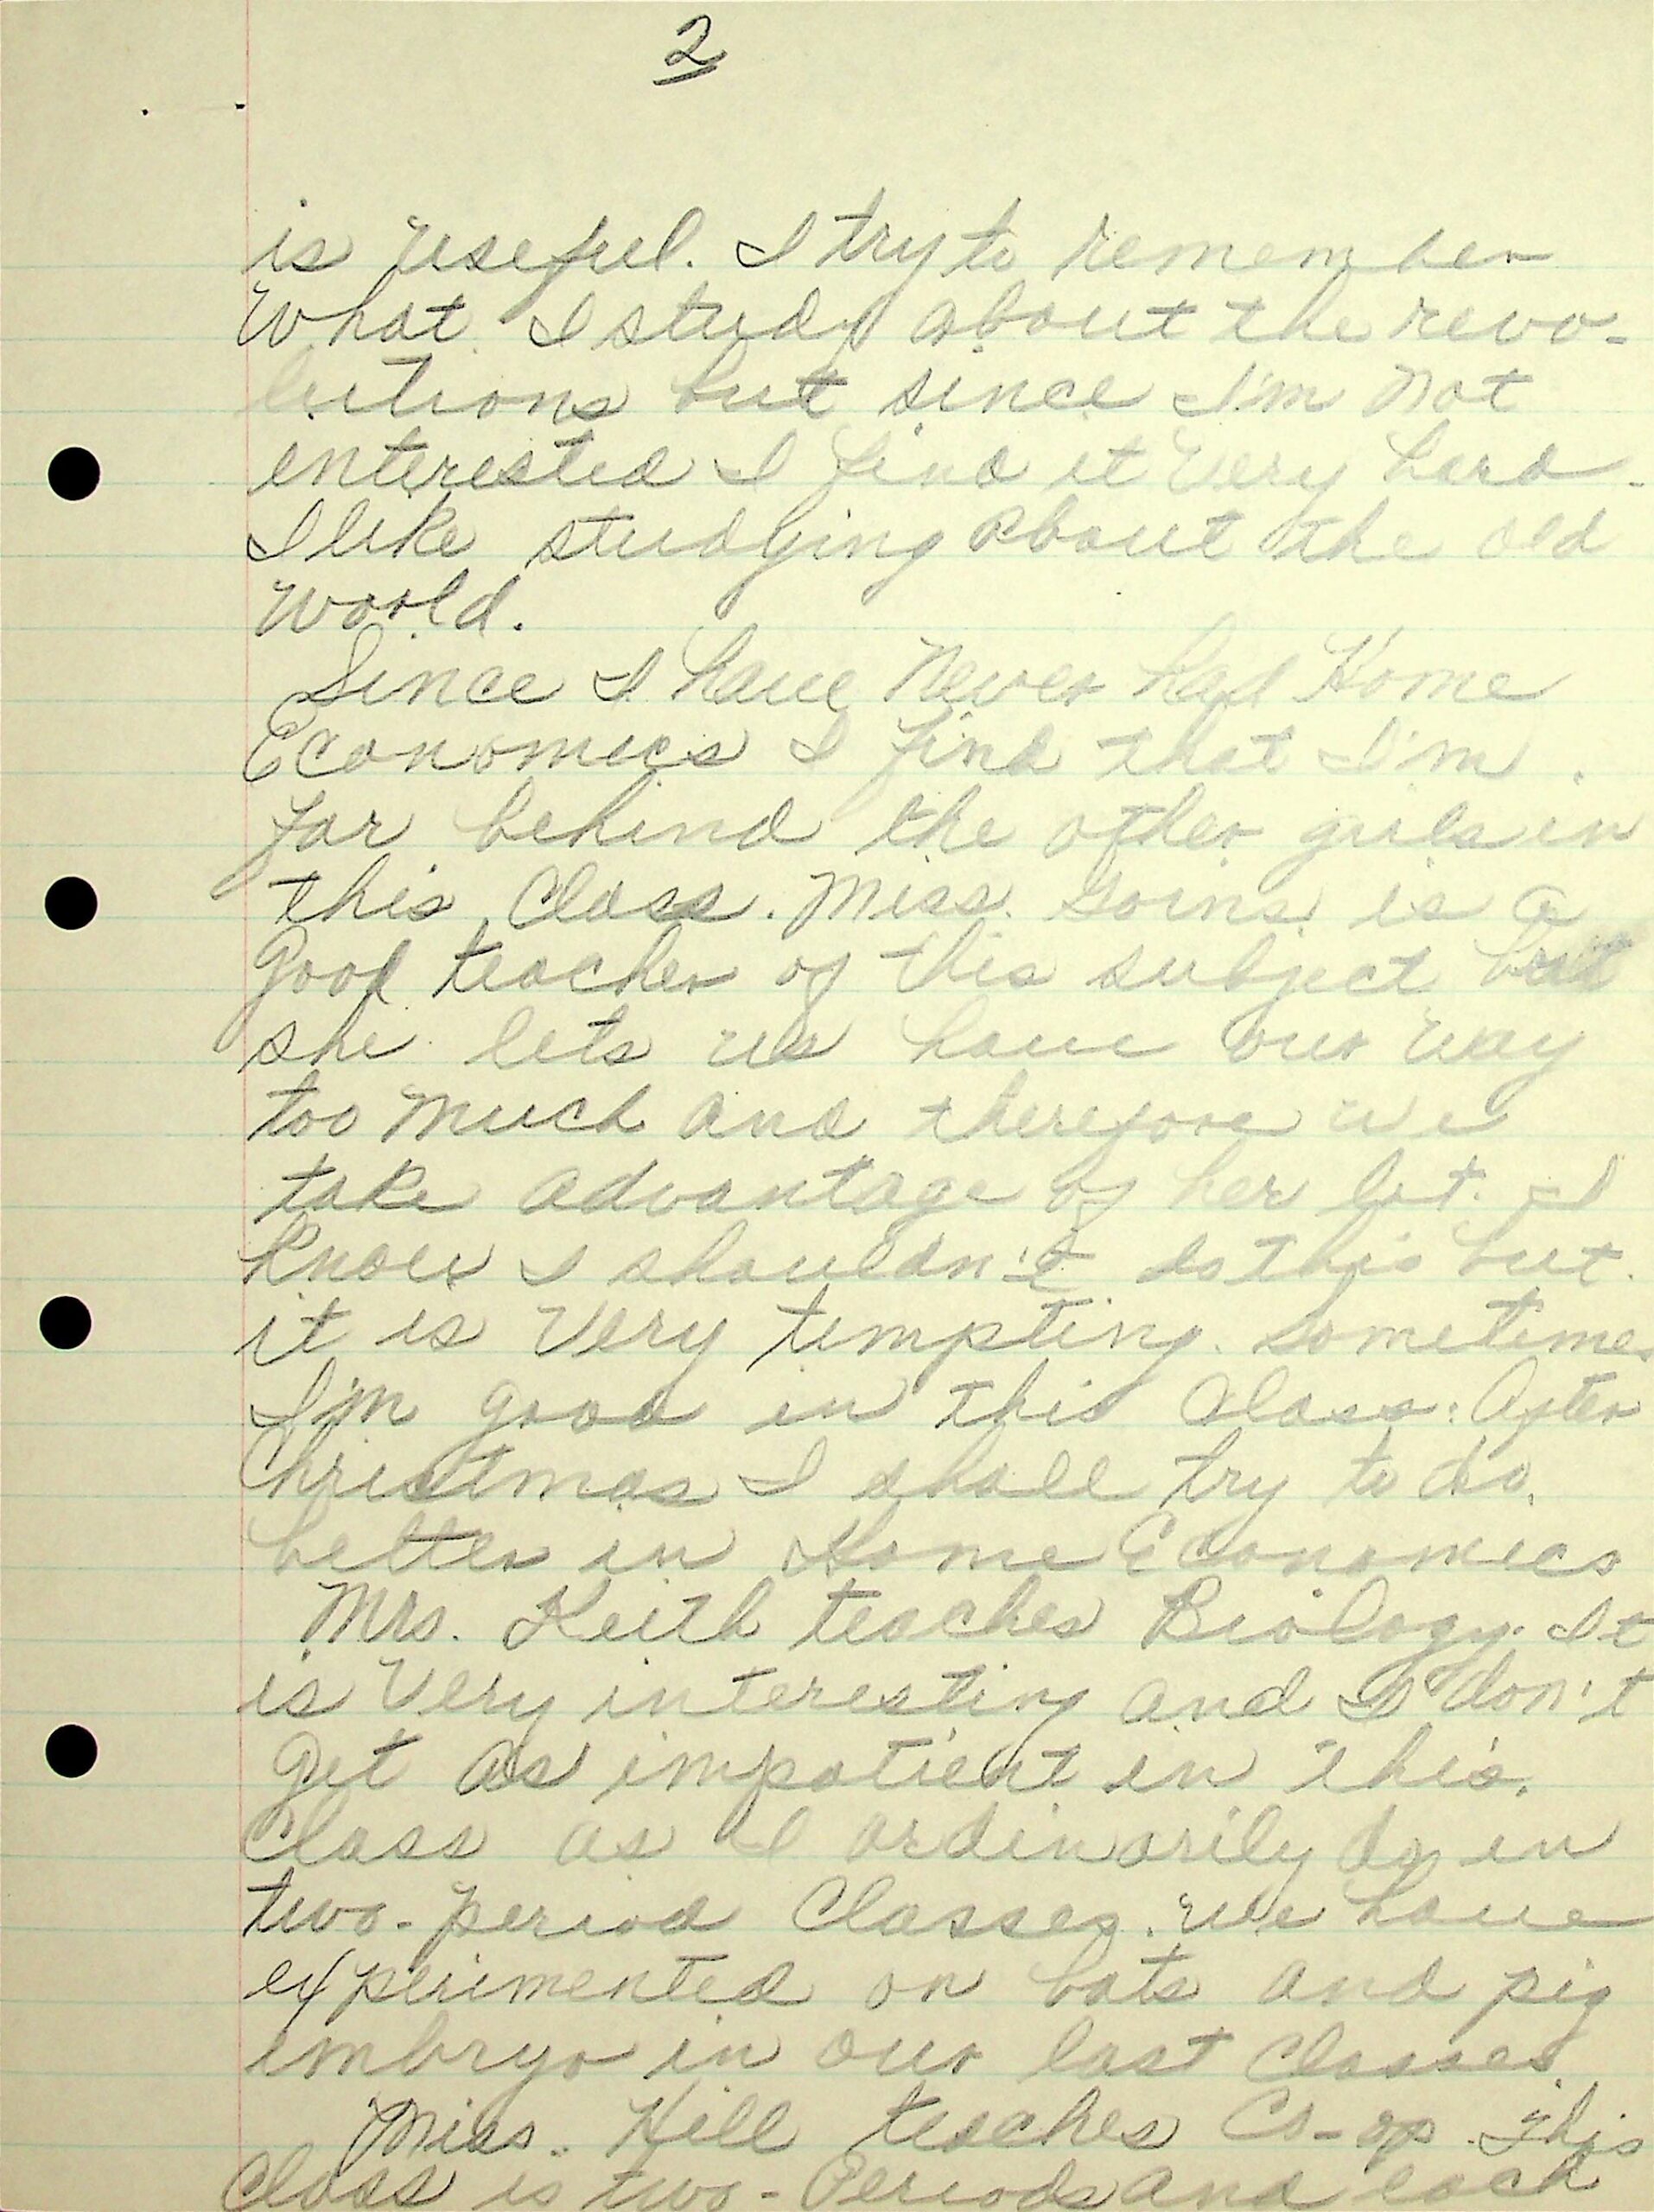 2
is useful. I try to remember
What I study about the revo-
lutions but since I'm not
interested I find it very hard.
I like studying about the old
world.
Since I have Never had Home
Economics I find that I'm
far behind the other girls in
this Class. Miss. Goins is a
Good teacher of this subject but
she lets us have our way
too much and therefore we
take advantage of her lot. I
Know I shouldn't do this but
it is Very tempting. sometimes
I'm good in this Class. After
Christmas I shall try to do
better in Home Economics
Mrs. Keith teaches Biology. It
is Very interesting and I don't
Get as impatient in this
Class as I ordinarily do in
two-period Classes. We have
experimented on bats and pig
embryo in our last Classes.
Miss. Hill teaches Co-op. This
Class is two-Periods and each